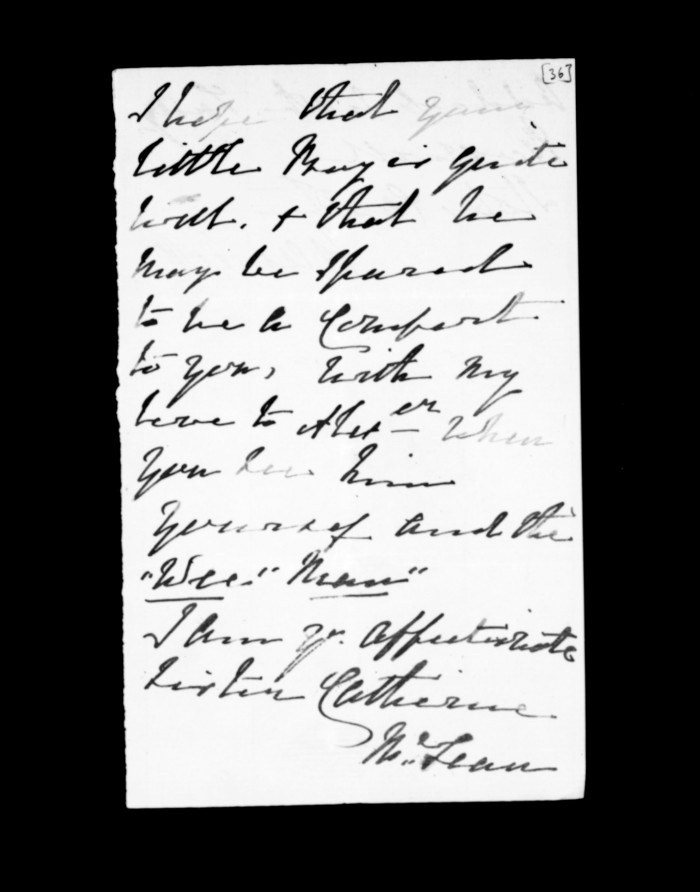 [36]
I hope that your
little Boy is quite
well. & that he
may be spared
to be a Comfort
to you, with my
love to Alexer when
you see him
yourself and the
"Wee" Man"
I am yr. affectionate
Sister Catherine
McLean